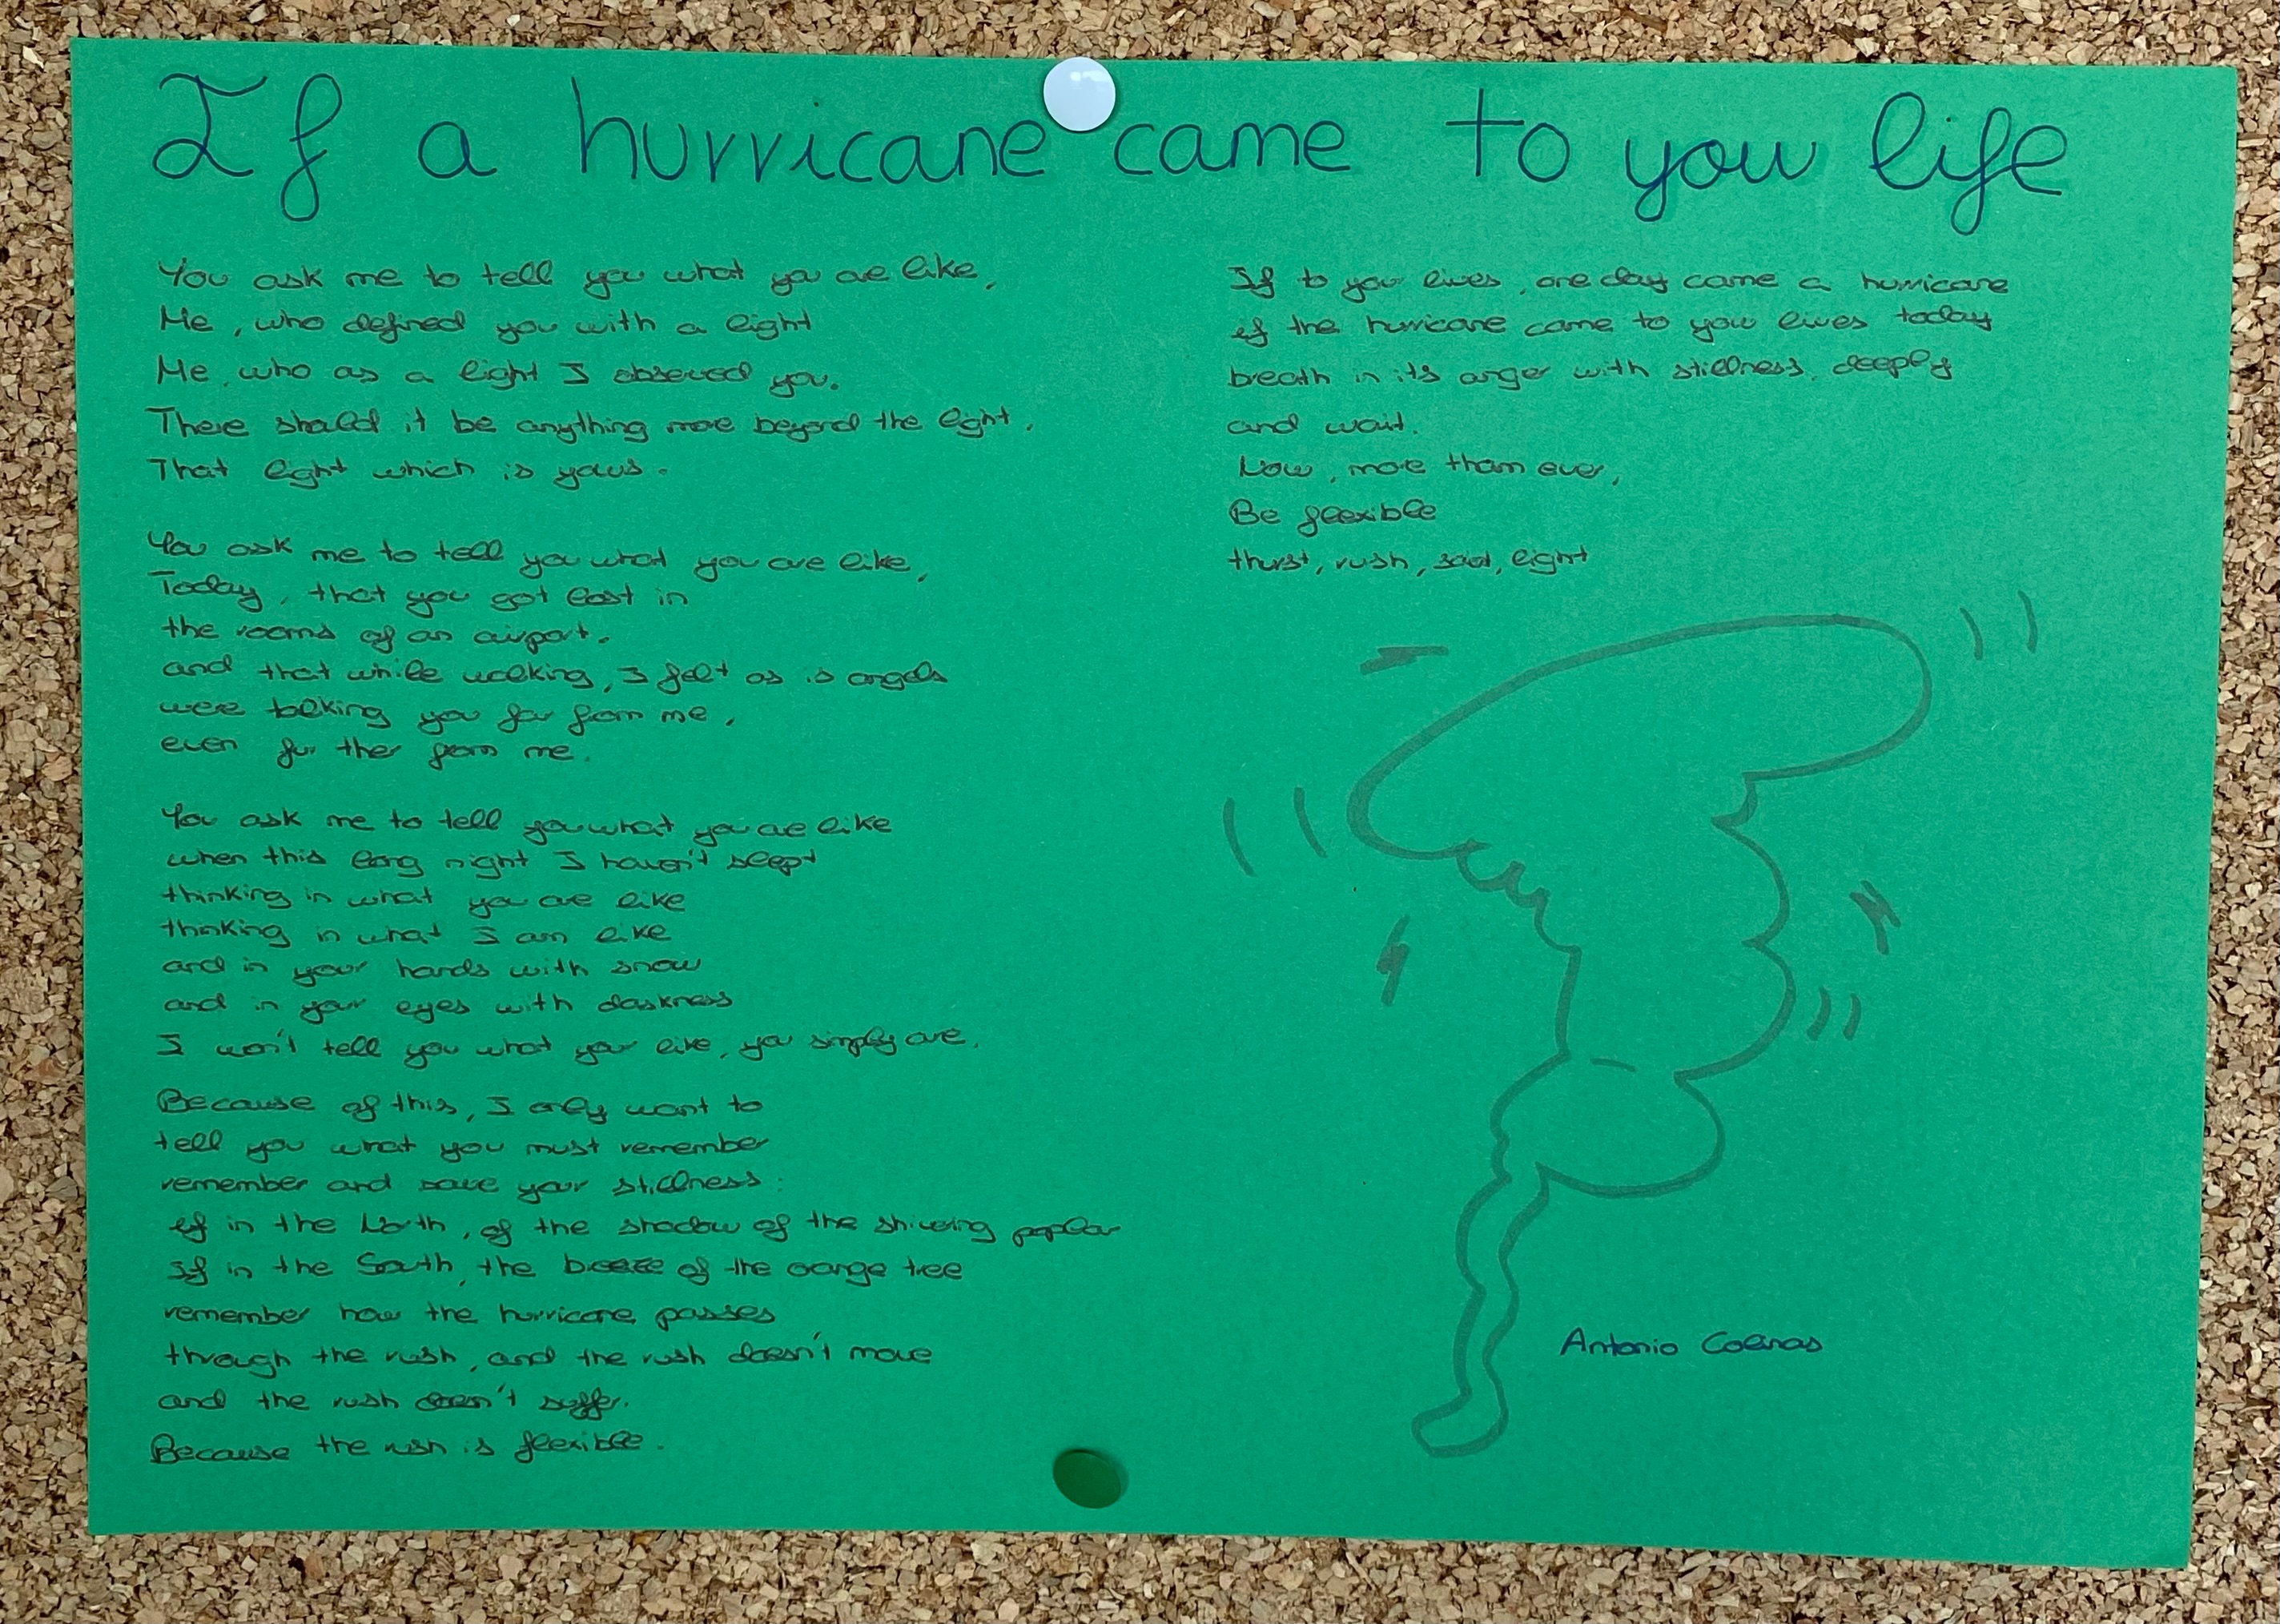 If a hurricane came to you life
You ask me to tell you what you are like,
Me, who defined you with a light
Me, who as a light I observed you.
There should it be anything more beyond the light.
That light which is yours.
You ask me to tell you what you are like,
Today, that you got lost in
the rooms of an airport.
and that while walking, I felt as is angels
were talking you far from me,
even further from me.
You ask me to tell you what you are like
when this long night I haven't slept
thinking in what you are like
thinking in what I am like
and in your hands with snow
and in your eyes with darkness
I won't tell you what your like, you simply are.
Because of this, I only want to
tell you what you must remember
remember and save your stillness:
if in the North, of the shadow of the shivering poplar
If in the South, the breeze of the orange tree
remember how the hurricane passes
through the rush, and the rush doesn't move
and the rush doesn't suffer.
Because the rush is flexible.
If to your lives, one day came a hurricane
if the hurricane came to your lives today
breath in its anger with stillness, deeply
and wait.
Now, more than ever,
Be flexible
thirst, rush, soul, light
Antonio Colinas